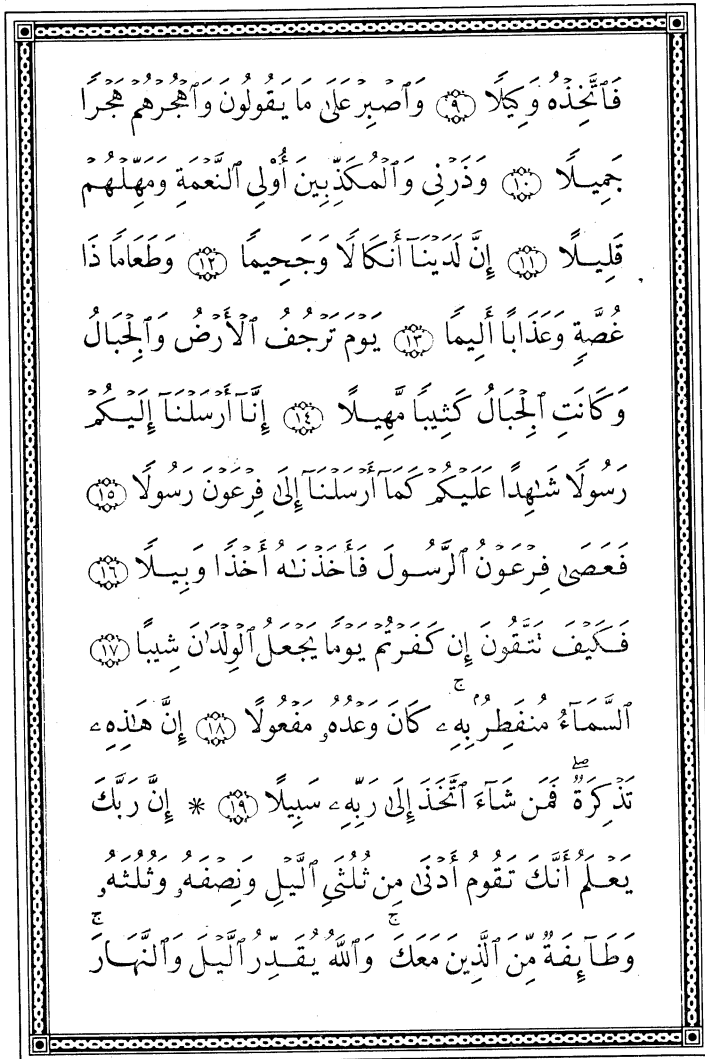 فَٱتَّخِذْهُ وَكِيلًا ٩ وَٱصْبِرْ عَلَىٰ مَا يَقُولُونَ وَٱهْجُرْهُمْ هَجْرًا
جَمِيلًا ١٠ وَذَرْنِى وَٱلْمُكَذِّبِينَ أُوْلِى ٱلنَّعْمَةِ وَمَهِّلْهُمْ
قَلِيلًا ١١ إِنَّ لَدَيْنَآ أَنكَالًا وَجَحِيمًا ١٢ وَطَعَامًا ذَا
غُصَّةٍ وَعَذَابًا أَلِيمًا ١٣ يَوْمَ تَرْجُفُ ٱلْأَرْضُ وَٱلْجِبَالُ
وَكَانَتِ ٱلْجِبَالُ كَثِيبًا مَّهِيلًا ١٤ إِنَّآ أَرْسَلْنَآ إِلَيْكُمْ
رَسُولًا شَٰهِدًا عَلَيْكُمْ كَمَآ أَرْسَلْنَآ إِلَىٰ فِرْعَوْنَ رَسُولًا ١٥
فَعَصَىٰ فِرْعَوْنُ ٱلرَّسُولَ فَأَخَذْنَٰهُ أَخْذًا وَبِيلًا ١٦
فَكَيْفَ تَتَّقُونَ إِن كَفَرْتُمْ يَوْمًا يَجْعَلُ ٱلْوِلْدَٰنَ شِيبًا ١٧
ٱلسَّمَآءُ مُنفَطِرٌۢ بِهِۦ ۚ كَانَ وَعْدُهُۥ مَفْعُولًا ١٨ إِنَّ هَٰذِهِۦ
تَذْكِرَةٌ ۖ فَمَن شَآءَ ٱتَّخَذَ إِلَىٰ رَبِّهِۦ سَبِيلًا ١٩ * إِنَّ رَبَّكَ
يَعْلَمُ أَنَّكَ تَقُومُ أَدْنَىٰ مِن ثُلُثَىِ ٱلَّيْلِ وَنِصْفَهُۥ وَثُلُثَهُۥ
وَطَآئِفَةٌ مِّنَ ٱلَّذِينَ مَعَكَ ۚ وَٱللَّهُ يُقَدِّرُ ٱلَّيْلَ وَٱلنَّهَارَ ۚ